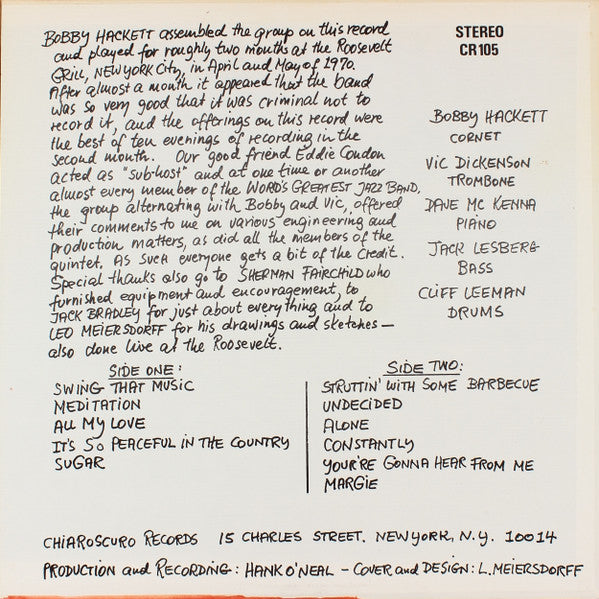 BOBBY HACKETT assembled the group on this record
and played for roughly two months at the Roosevelt
GRILL, NEW YORK CITY, in April and May of 1970.
After almost a month it appeared that the band
was so very good that it was criminal not to
record it, and the offerings on this record were
the best of ten evenings of recording in the
second month. Our good friend Eddie Condon
acted as "sub-host" and at one time or another
almost every member of the WORD'S GREATEST JAZZ BAND,
the group alternating with Bobby and Vic, offered
their comments to me on various engineering and
production matters, as did all the members of the
quintet. AS SUCH everyone gets a bit of the credit.
Special thanks also go to SHERMAN FAIRCHILD who
furnished equipment and encouragement, to
JACK BRADLEY for just about everything and to
LEO MEIERSDORFF for his drawings and sketches—
also done live at the Roosevelt.
STEREO
CR105
BOBBY HACKETT
CORNET
VIC DICKENSON
TROMBONE
DAVE MC KENNA
PIANO
JACK LESBERG
BASS
CLIFF LEEMAN
DRUMS
SIDE ONE:
SWING THAT MUSIC
MEDITATION
ALL MY LOVE
IT'S SO PEACEFUL IN THE COUNTRY
SUGAR
SIDE TWO:
STRUTTIN' WITH SOME BARBECUE
UNDECIDED
ALONE
CONSTANTLY
YOUR'RE GONNA HEAR FROM ME
MARGIE
CHIAROSCURO RECORDS 15 CHARLES STREET. NEW YORK, N.Y. 10014
PRODUCTION and RECORDING: HANK O'NEAL - COVER and DESIGN: L. MEIERSDORFF